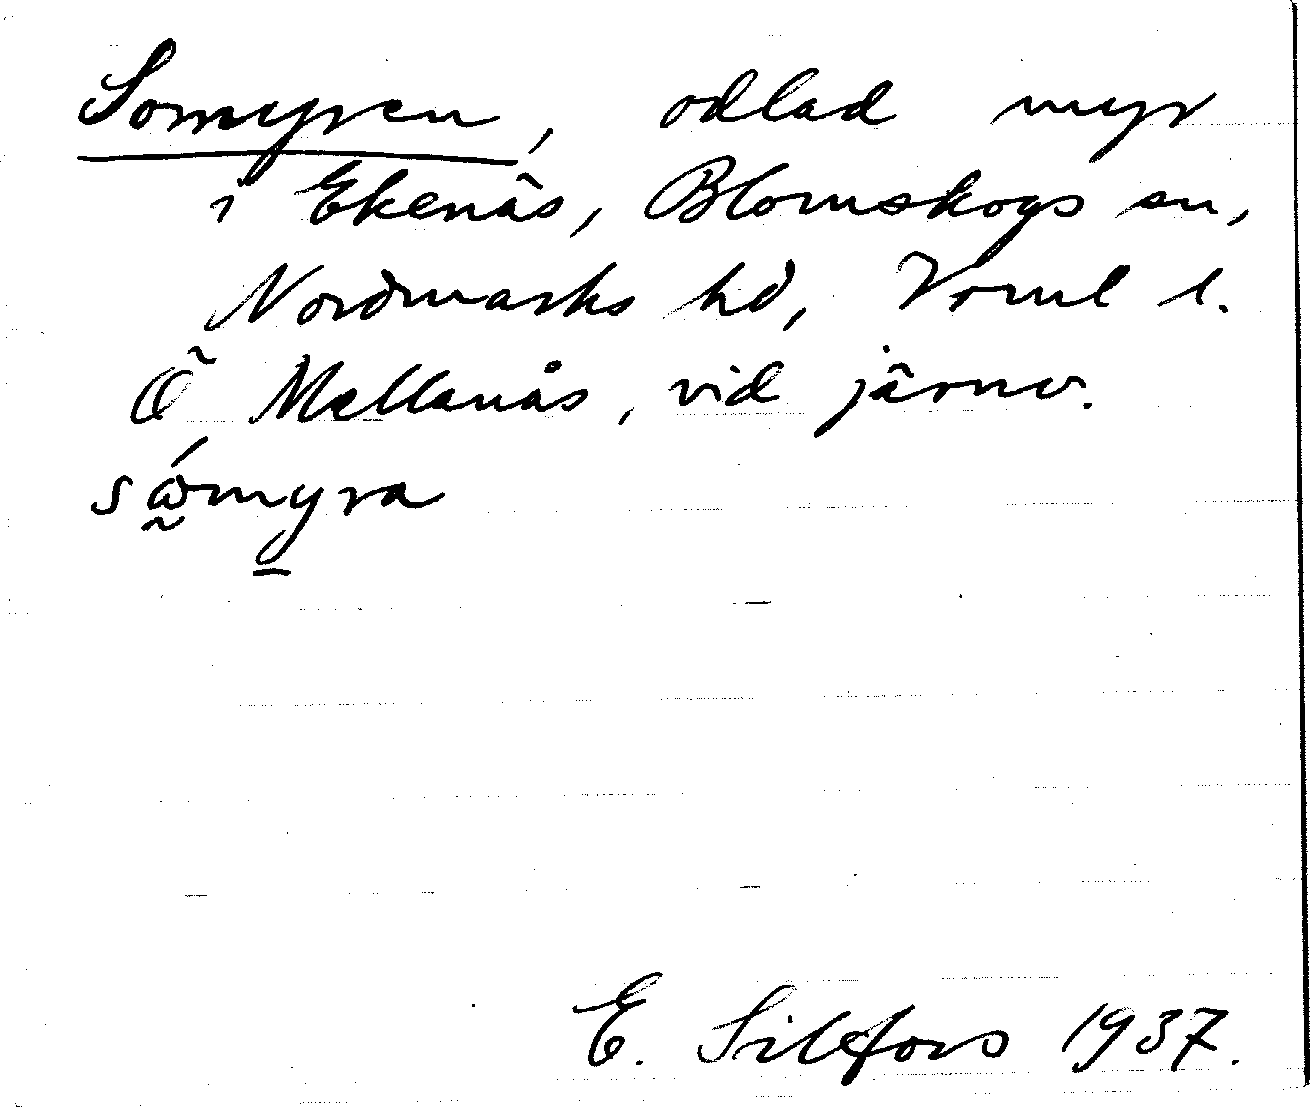 Somyren, odlad myr
i Ekenäs, Blomskogs sn,
Nordmarks hd, Vrml l.
Ö Mellanås, vid järnv.
sǻ̰my̱ra
E. Silfors 1937.